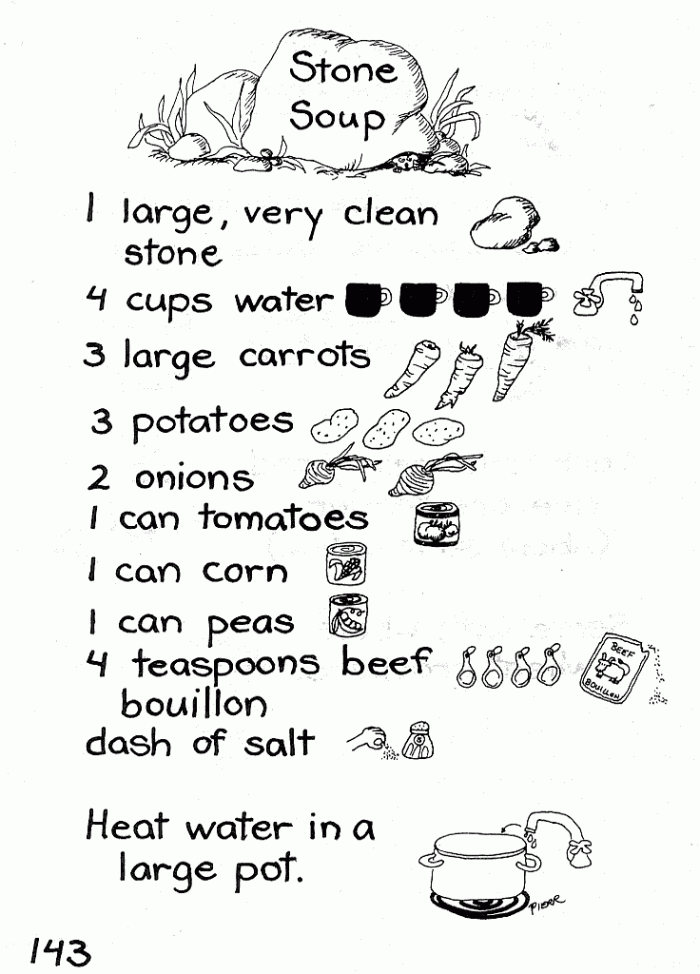 Stone
Soup
1 large, very clean
stone
4 cups water
3 large carrots
3 potatoes
2 onions
1 can tomatoes
1 can corn
1 can peas
4 teaspoons beef
bouillon
BEEF
BOUILLON
dash of salt
S
Heat water in a
large pot.
143